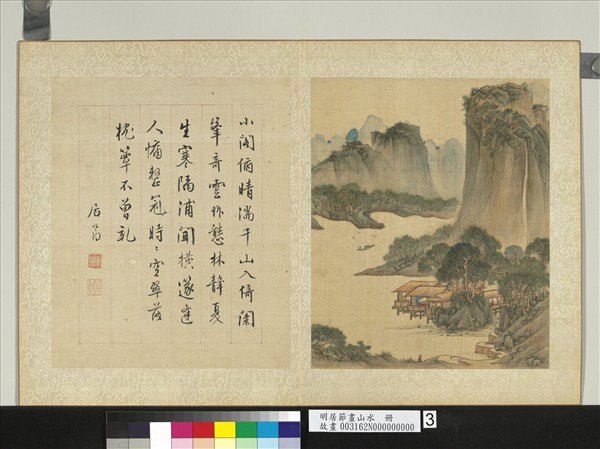 小閣俯晴湍千山入倚闌
峯奇雲作態林靜夏
生寒隔浦聞橫篴逢
人慵整冠時時空翠落
枕簟不曾乾
居節
明居節畫山水 冊
故畫 003162N000000000
3